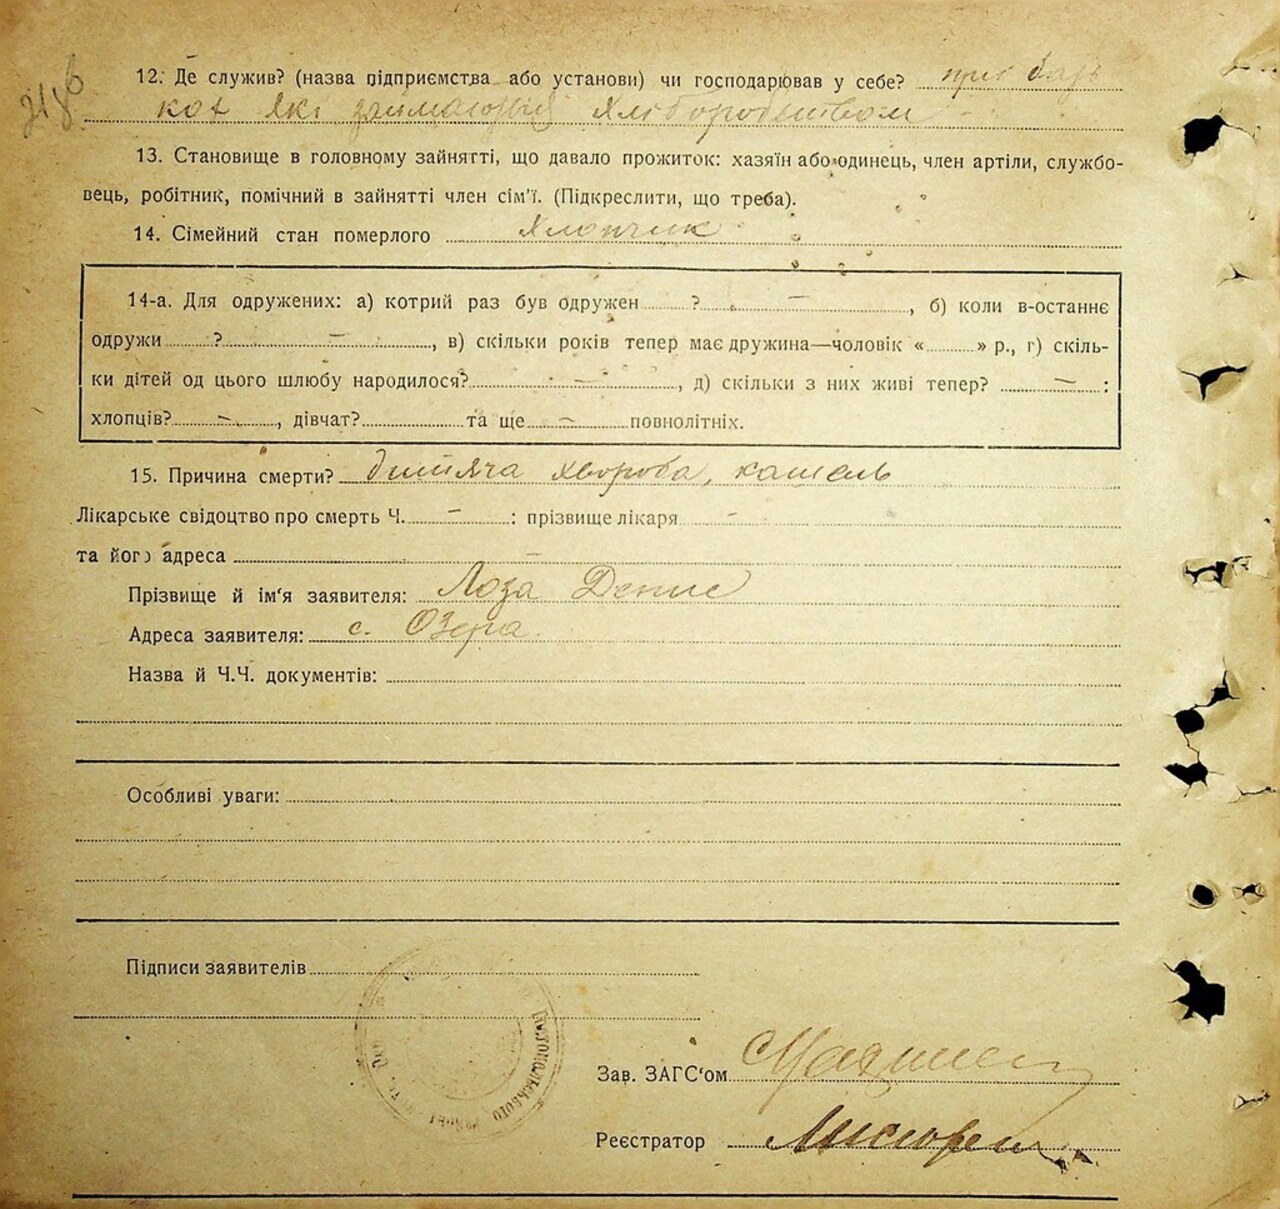 12. Де служив? (назва підприємства або установи) чи господарював у себе? при бать
ках які займаються хліборобством
13. Становище в головному зайнятті, що давало прожиток: хазяїн або одинець, член артіли, службо-
вець, робітник, помічний в зайнятті член сім'ї. (Підкреслити, що треба).
14. Сімейний стан померлого хлопчик
14-а. Для одружених: а) котрий раз був одружен ? —, б) коли в-останнє
одружи ? —, в) скільки років тепер має дружина—чоловік « » р., г) скіль-
ки дітей од цього шлюбу народилося? —, д) скільки з них живі тепер? — :
хлопців? —, дівчат? та ще — повнолітніх.
15. Причина смерти? дитяча хвороба, кашель
Лікарське свідоцтво про смерть Ч. — : прізвище лікаря —
та його адреса —
Прізвище й ім'я заявителя: Лоза Денис
Адреса заявителя: с. Озера
Назва й Ч.Ч. документів:
Особливі уваги:
Підписи заявителів
Зав. ЗАГС'ом
Реєстратор